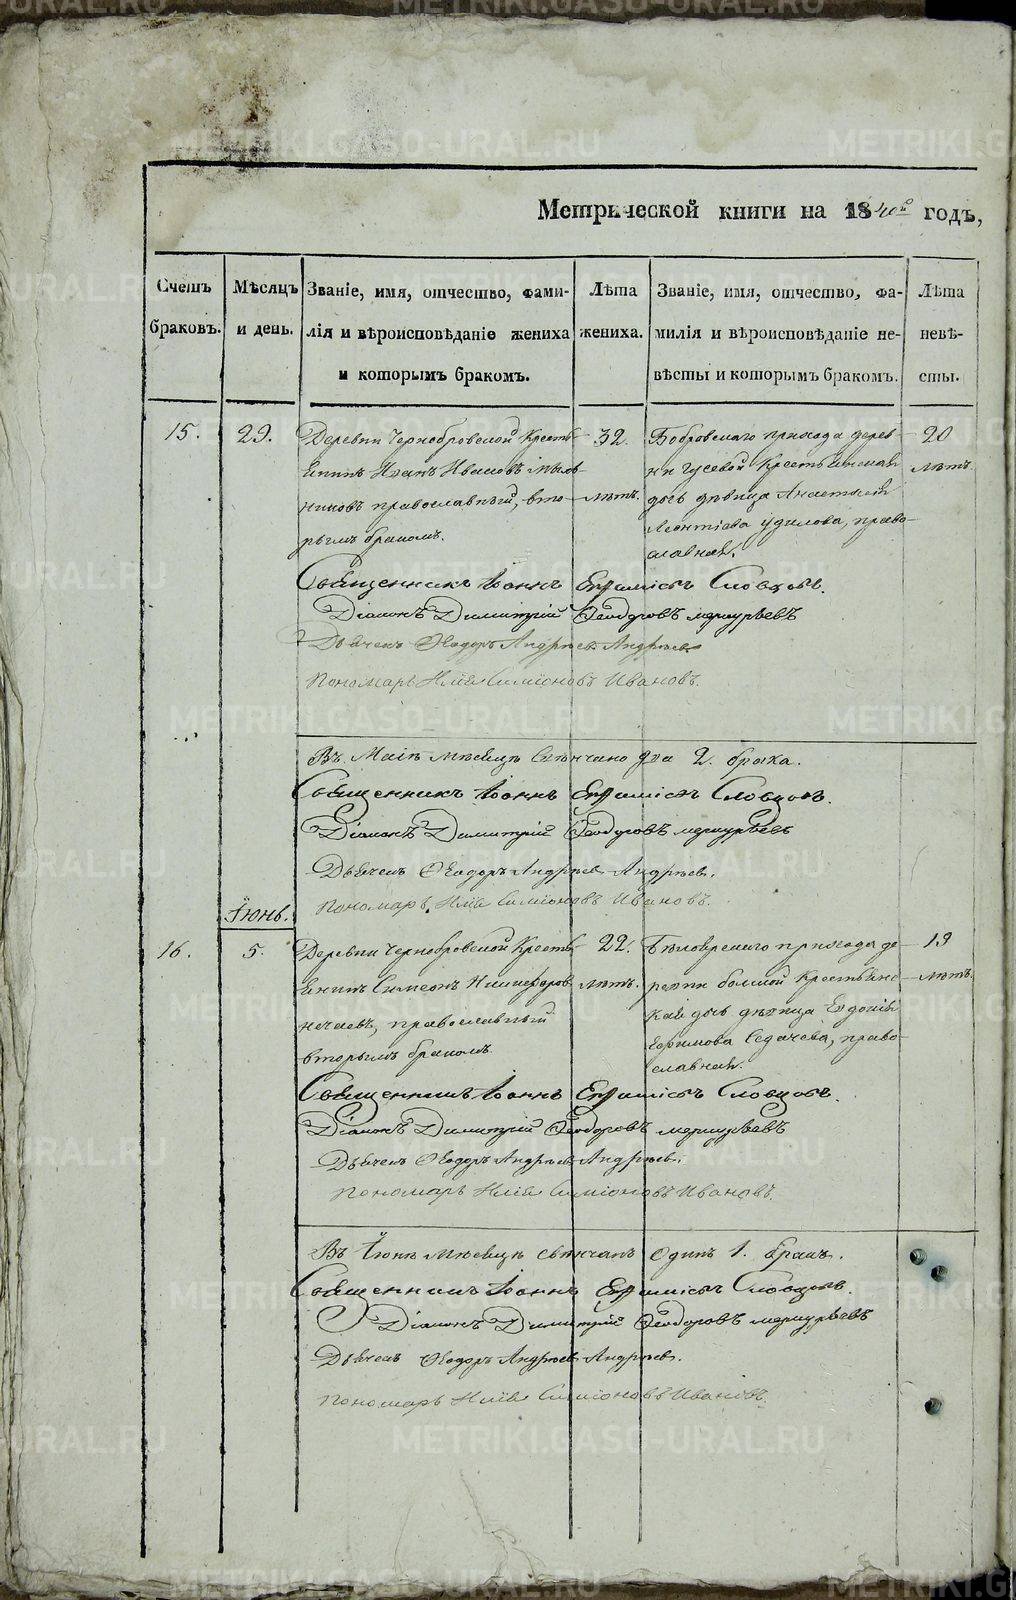 Метрической книги на 1840й годъ,
Счетъ браковъ.
Мѣсяцъ и день.
Званіе, имя, отчество, фами-
лія и вѣроисповѣданіе жениха
и которымъ бракомъ.
Лѣта жениха.
Званіе, имя, отчество, фа-
милія и вѣроисповѣданіе не-
вѣсты и которымъ бракомъ.
Лѣта невѣ-
сты.
15.
29.
Деревни Чернобровской Кресть-
янинъ Иванъ Ивановъ
православный, вто-
рымъ бракомъ.
32.
лѣтъ.
Бобровскаго прихода дерев-
ни Гусевой Крестьянская
дочь дѣвица Анастасія
Леонтіева Удилова, право-
славная.
20
лѣтъ.
Священникъ Іоаннъ Словцовъ.
Діаконъ Димитрій Ѳеодоровъ Меркурьевъ
Дьячекъ Ѳеодоръ Андреевъ Андреевъ
Пономарь Илія Симіоновъ Ивановъ.
Въ Маіѣ мѣсяцѣ вѣнчано два 2. брака.
Священникъ Іоаннъ Словцовъ.
Діаконъ Димитрій Ѳеодоровъ Меркурьевъ
Дьячекъ Ѳеодоръ Андреевъ Андреевъ.
Пономарь Илія Симіоновъ Ивановъ.
Іюнь.
16.
5.
Деревни Чернобровской Кресть-
янинъ Симеонъ Никифоров
Нечаевъ, православный
вторымъ бракомъ.
22.
лѣтъ.
прихода де-
ревни Крестьянс-
кая дочь дѣвица Евдокія
Ефимова Седачева, право-
славная.
19
лѣтъ.
Священникъ Іоаннъ Словцовъ.
Діаконъ Димитрій Ѳеодоровъ Меркурьевъ
Дьячекъ Ѳеодоръ Андреевъ Андреевъ.
Пономарь Илія Симіоновъ Ивановъ.
Въ Іюнѣ мѣсяцѣ вѣнчанъ одинъ 1. бракъ.
Священникъ Іоаннъ Словцовъ.
Діаконъ Димитрій Ѳеодоровъ Меркурьевъ
Дьячекъ Ѳеодоръ Андреевъ Андреевъ.
Пономарь Илія Симіоновъ Ивановъ.
METRIKI.GASO-URAL.RU